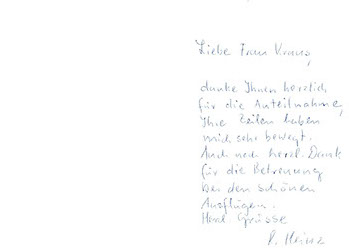 Liebe Frau Kraus,
danke Ihnen herzlich
für die Anteilnahme,
Ihre Zeilen haben
mich sehr bewegt.
Auch noch herzl. Dank
für die Betreuung
bei den schönen
Ausflügen.
Herzl Grüsse
P. Heinz